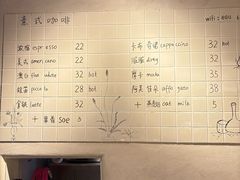 意式咖啡
wifi: eau
浓缩 espresso 22
美式 americano 22
澳白 flat white 32 hot
piccolo 28 hot
拿铁 latte 32
+ soe 5
卡布奇诺 cappuccino 32 hot
dirty 32
摩卡 mocha 35
阿芙佳朵 affogato 38
+ 燕麦奶 oat milk 5